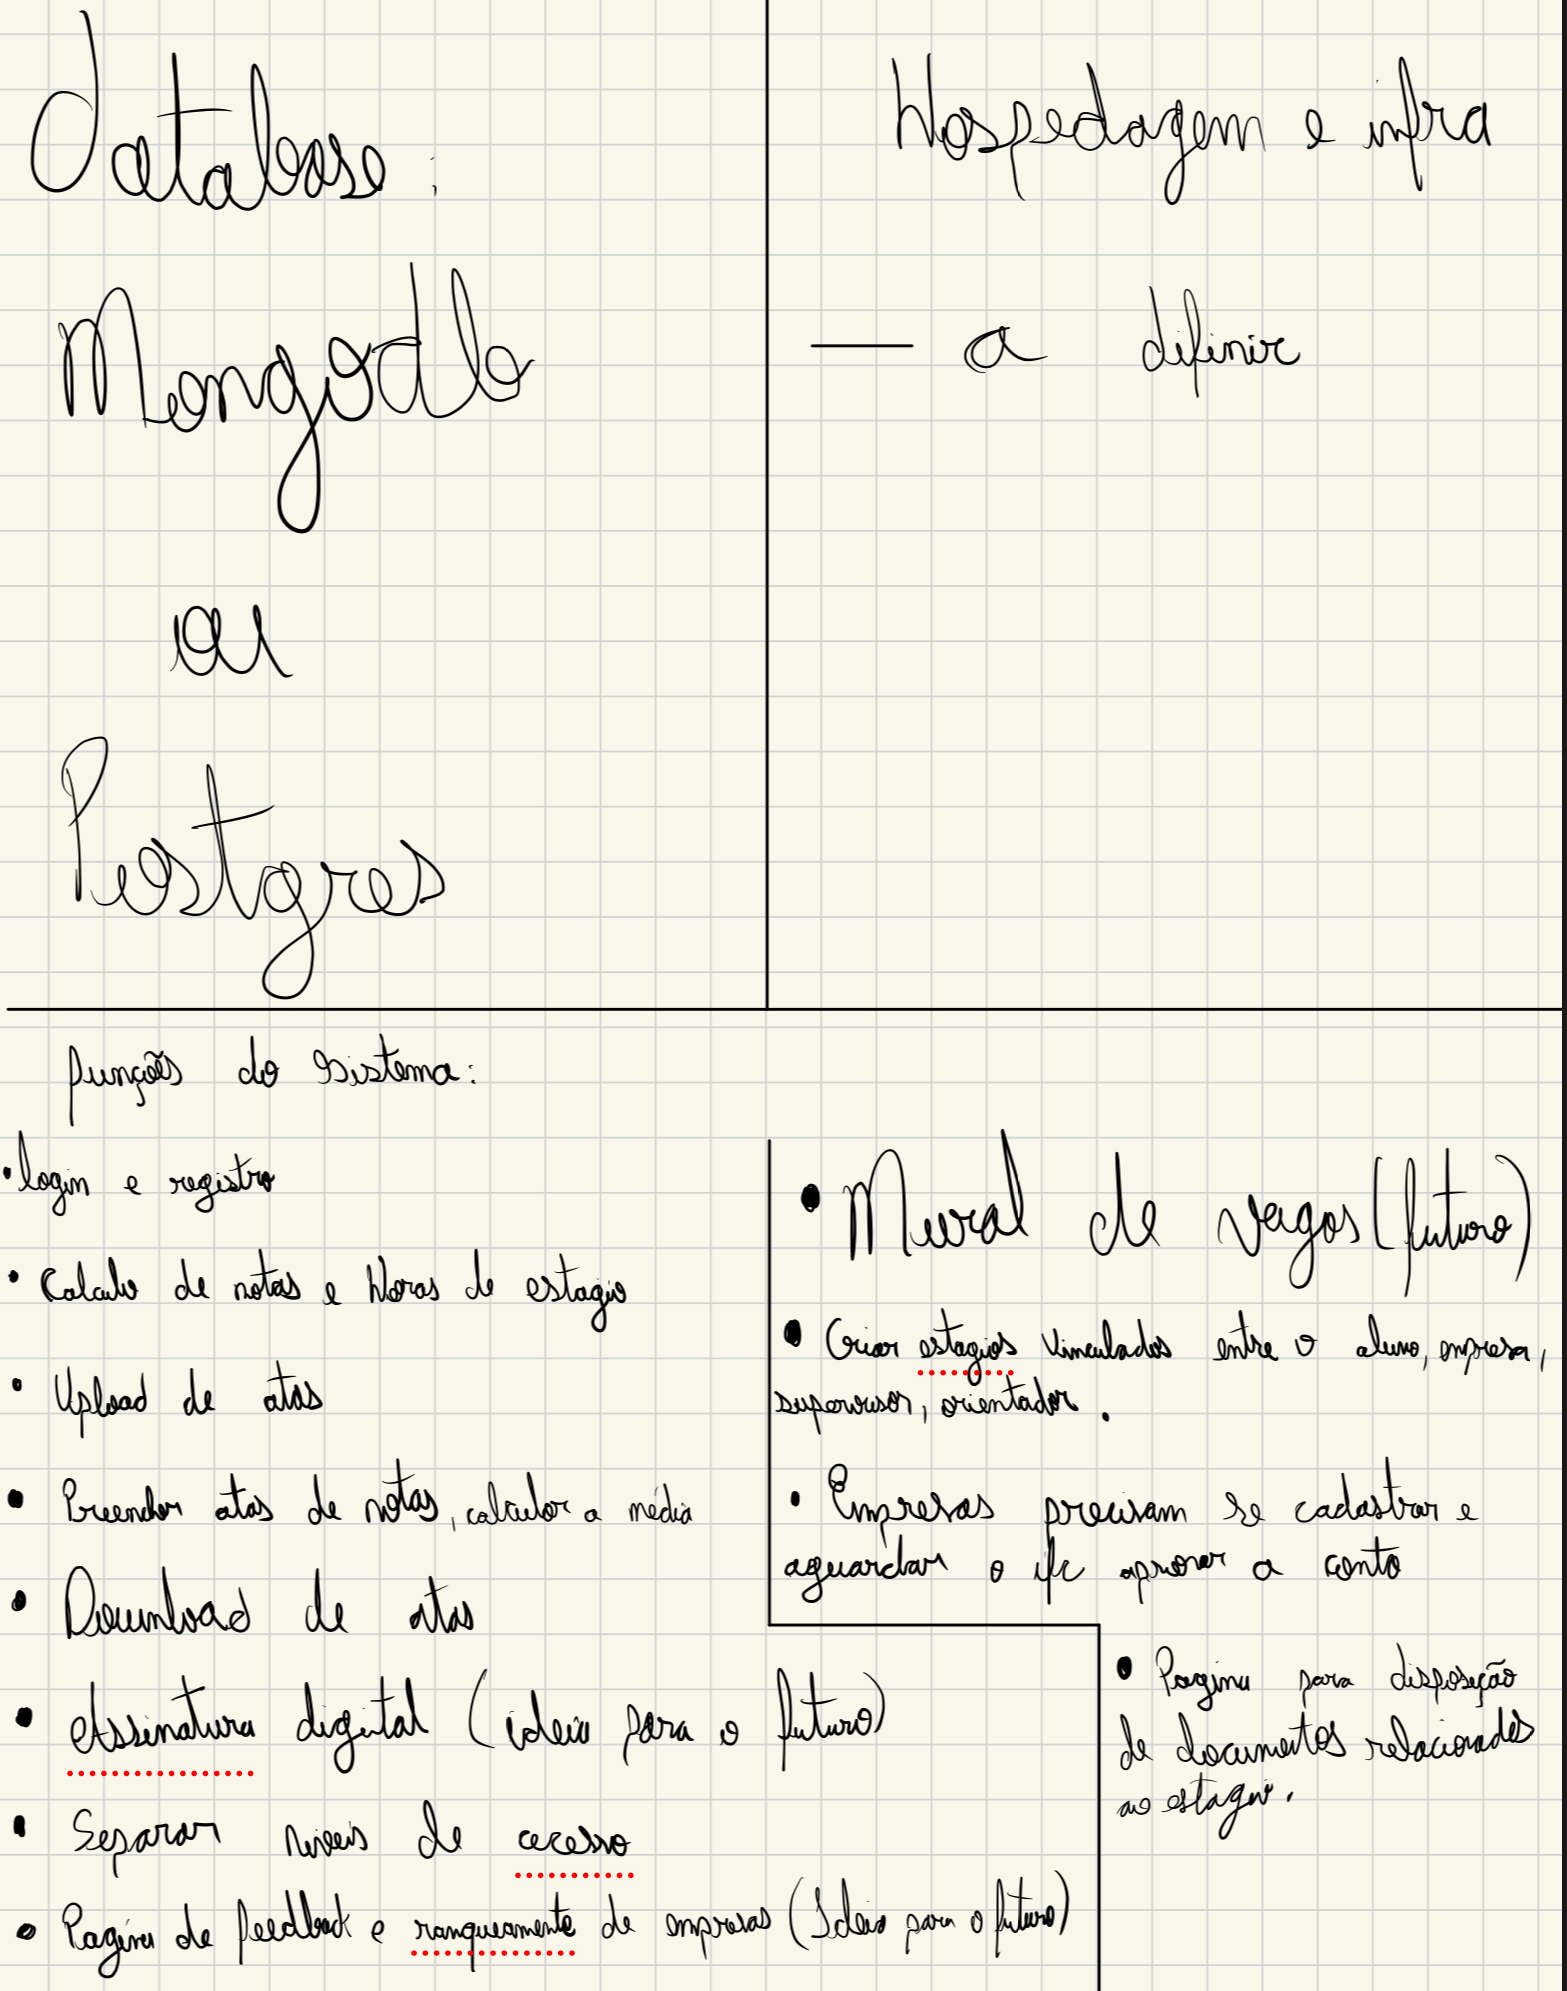 database:
Mongodb
ou
Postgres
Hospedagem e infra
— a definir
funções do sistema:
• login e registro
• Calculo de notas e Horas de estagio
• Upload de atas
• Preencher atas de notas, calcular a média
• Download de atas
• Assinatura digital (ideia para o futuro)
• Separar niveis de acesso
• Pagina de feedback e ranqueamento de empresas (Ideia para o futuro)
• Mural de vagas (futuro)
• Criar estagios vinculados entre o aluno, empresa,
supervisor, orientador.
• Empresas precisam se cadastrar e
aguardar o ifc aprovar a conta
• Pagina para disposição
de documentos relacionados
ao estagio.